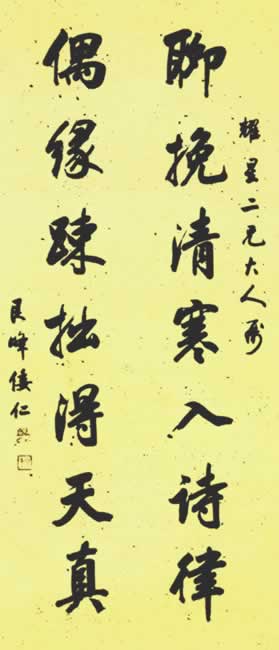 耀星二兄大人属
聊挽清寒入诗律
偶缘踈拙淂天真
艮峰倭仁